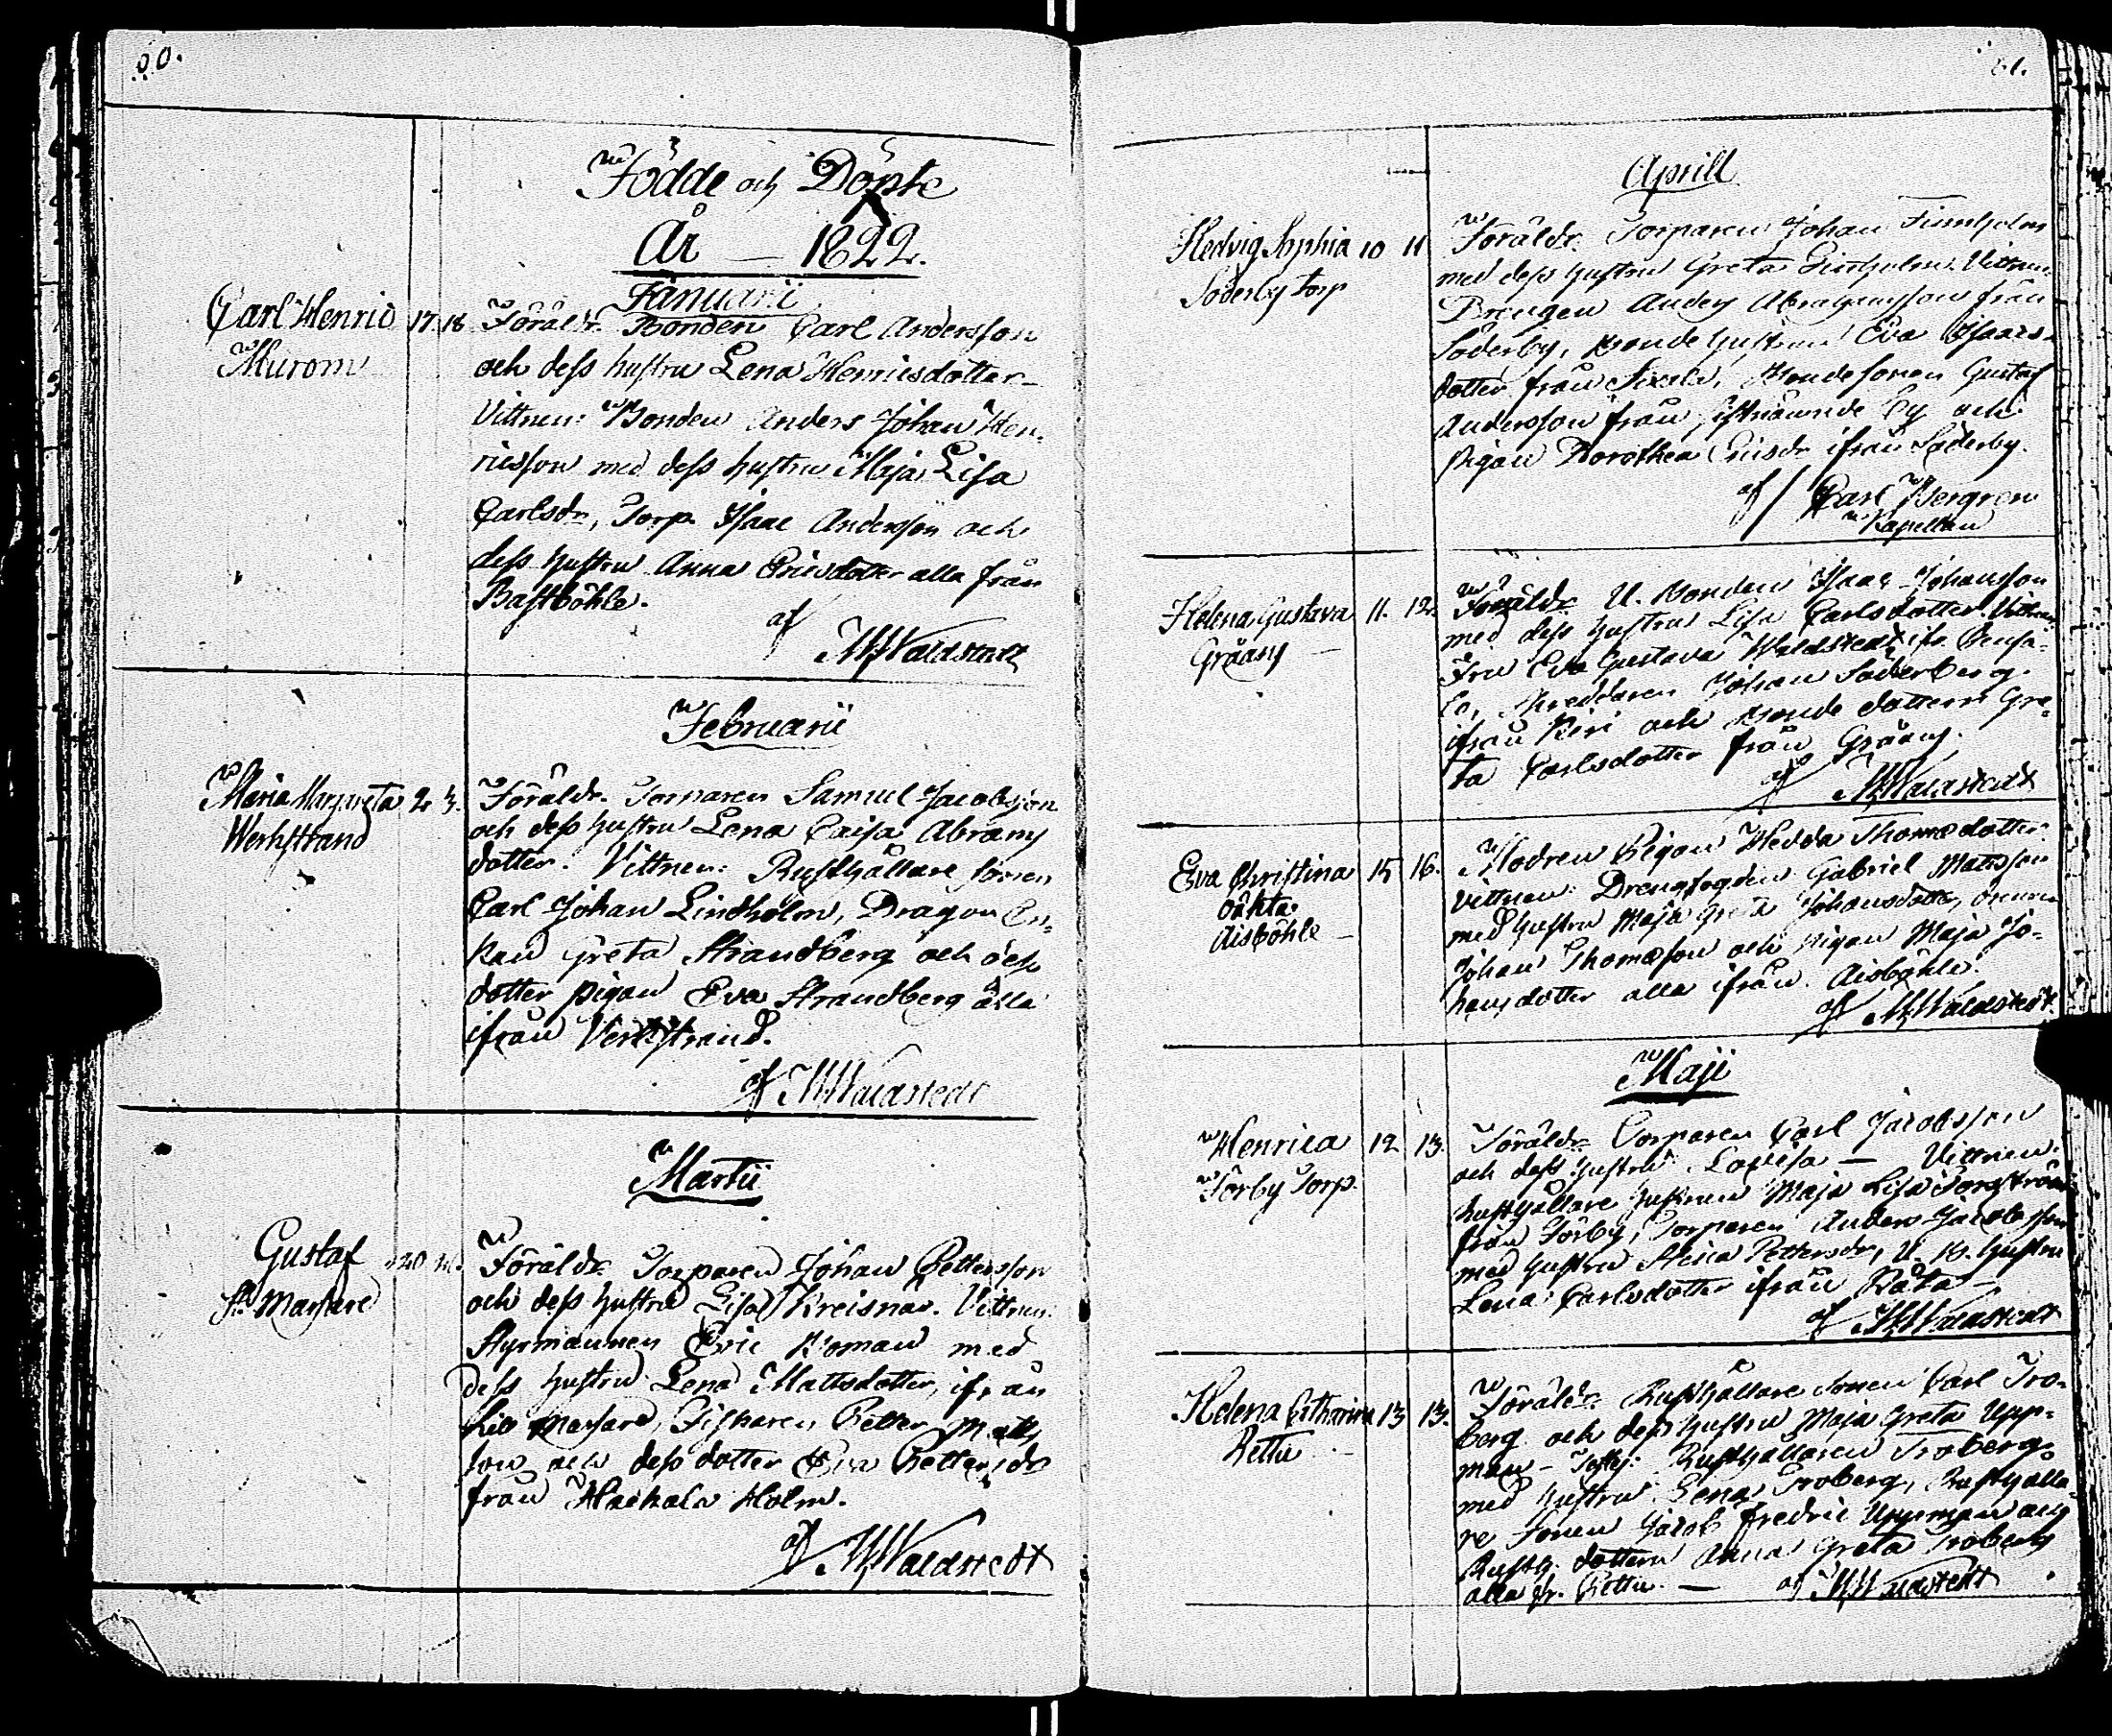 60.
Födde och Döpte
År — 1822.
Januarii
Carl Henric 17. 18 Föräldr. Bonden Carl Andersson
Murom och dess hustru Lena Henricsdotter
Vittnen: Bonden Anders Johan Hen-
ricsson med dess hustru Maja Lisa
Carlsdr, Torp. Isaac Andersson och
dess hustru Anna Ericsdotter alla från
Bastböhle.
af
Waldstedt
Februarii
Maria Margareta 2 3. Föräldr. Torparen Samuel Jacobsson
Werkstrand och dess hustru Lena Caisa Abrams
dotter. Vittnen: Rusthållare sonen
Carl Johan Lindholm, Dragon En-
kan Greta Strandberg och dess
dotter pigan Eva Strandberg alla
ifrån Verkstrand.
af Waldstedt
Martii
Gustaf 20 Föräldr. Torparen Johan Pettersson
och dess hustru Lisa Vittnen:
Styrmannen Eric Boman med
dess hustru Lena Mattsdotter, ifrån
Fiskaren Petter Matts
son och dess dotter Eva Pettersdr
från Holm.
af Waldstedt
61.
Aprill
Hedvig Sophia 10 11 Föräldr. Torparen Johan Finnholm
Söderby Torp med dess hustru Greta Vittnen:
Drengen Anders Abrahamsson från
Söderby, Bonde hustrun Eva Isaacs-
dotter från Bondesonen Gustaf
Andersson från by och
pigan Dorothea Ericsdr ifrån Söderby.
af Carl Bergren
Kapellan
Helena Gustava 11. 12. Föräldr. U. Bonden Isaac Johansson
Gråäng med dess hustru Lisa Carlsdotter. Vittnen:
Fru Eva Gustava Waldstedt ifr.
Johan Söderberg
ifrån och Bonde dottern Gre-
ta Carlsdotter från Gråäng.
af Waldstedt
Eva Christina 15 16. Modren Pigan Hedda Thomædotter
oäkta vittnen: Drengfogden Gabriel Matsson
Aisböhle med hustru Maja Greta Johansdotter,
Johan Thomæson och pigan Maja Jo-
hansdotter alla ifrån Aisböhle.
af Waldstedt.
Maji
Henrica 12 13. Föräldr. Torparen Carl Jacobsson
Förby Torp. och dess hustru Lovisa — Vittnen:
Rusthållare hustrun Maja Lisa
från Förby, Torparen Anders Jacobsson
med hustru Stina Pettersdr, U. B. hustru
Lena Carlsdotter ifrån Råta
af Waldstedt
Helena Catharina 13 13. Föräldr. Rusthållare sonen Carl Fro-
Pettu berg och dess hustru Maja Greta Upp-
man – Rusthållaren Froberg
med hustru Lena Froberg, Rusthålla-
re sonen Jacob Fredric Uppman och
Rusth. dottern Anna Greta Froberg
alla fr. Pettu. — af Waldstedt